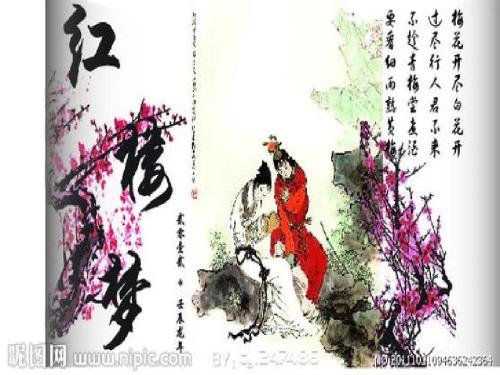 梅花开尽白花开
过尽行人君不来
不趁青梅尝煮酒
要看细雨熟黄梅
红楼梦
贰零壹贰 · 壬辰龙年
昵图网 www.nipic.com
NO:20111031094636242364